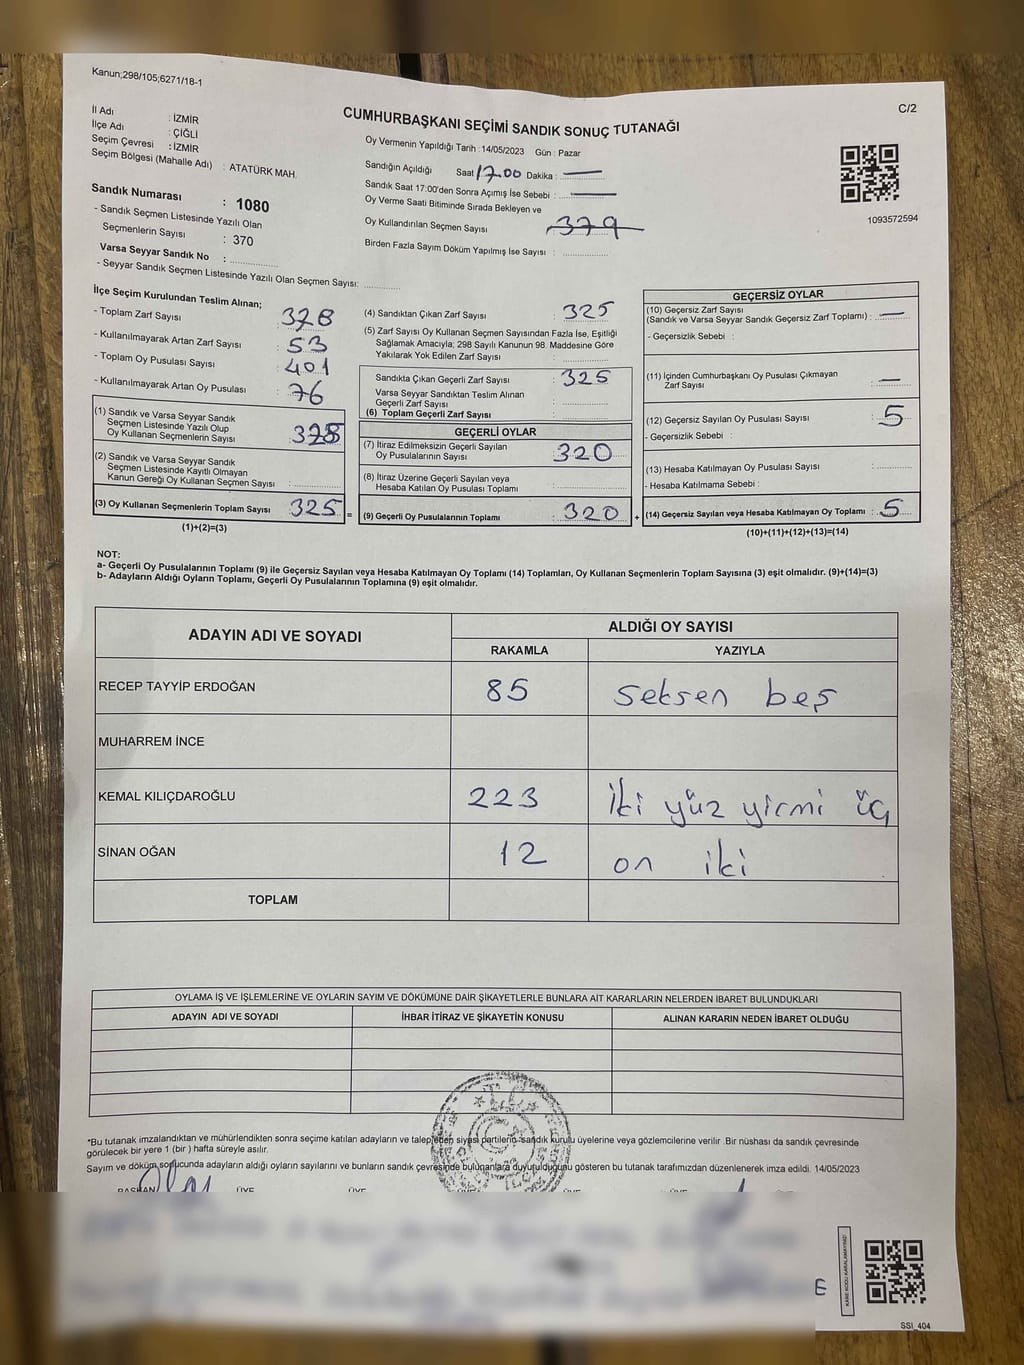 Kanun;298/105;6271/18-1
C/2
CUMHURBAŞKANI SEÇİMİ SANDIK SONUÇ TUTANAĞI
İl Adı : İZMİR
İlçe Adı : ÇİĞLİ
Seçim Çevresi : İZMİR
Seçim Bölgesi (Mahalle Adı) : ATATÜRK MAH.
Sandık Numarası : 1080
- Sandık Seçmen Listesinde Yazılı Olan
Seçmenlerin Sayısı : 370
Varsa Seyyar Sandık No :
- Seyyar Sandık Seçmen Listesinde Yazılı Olan Seçmen Sayısı:
Oy Vermenin Yapıldığı Tarih : 14/05/2023 Gün : Pazar
Sandığın Açıldığı Saat 17.00 Dakika : —
Sandık Saat 17:00'den Sonra Açımış İse Sebebi : —
Oy Verme Saati Bitiminde Sırada Bekleyen ve
Oy Kullandırılan Seçmen Sayısı 379
Birden Fazla Sayım Döküm Yapılmış İse Sayısı :
1093572594
İlçe Seçim Kurulundan Teslim Alınan;
- Toplam Zarf Sayısı : 378
- Kullanılmayarak Artan Zarf Sayısı : 53
- Toplam Oy Pusulası Sayısı : 401
- Kullanılmayarak Artan Oy Pusulası : 76
(1) Sandık ve Varsa Seyyar Sandık
Seçmen Listesinde Yazılı Olup
Oy Kullanan Seçmenlerin Sayısı :
(2) Sandık ve Varsa Seyyar Sandık
Seçmen Listesinde Kayıtlı Olmayan
Kanun Gereği Oy Kullanan Seçmen Sayısı :
(3) Oy Kullanan Seçmenlerin Toplam Sayısı 325 =
(1)+(2)=(3)
(4) Sandıktan Çıkan Zarf Sayısı : 325
(5) Zarf Sayısı Oy Kullanan Seçmen Sayısından Fazla İse, Eşitliği
Sağlamak Amacıyla; 298 Sayılı Kanunun 98. Maddesine Göre
Yakılarak Yok Edilen Zarf Sayısı :
Sandıkta Çıkan Geçerli Zarf Sayısı : 325
Varsa Seyyar Sandıktan Teslim Alınan
Geçerli Zarf Sayısı :
(6) Toplam Geçerli Zarf Sayısı :
GEÇERLİ OYLAR
(7) İtiraz Edilmeksizin Geçerli Sayılan
Oy Pusulalarının Sayısı : 320
(8) İtiraz Üzerine Geçerli Sayılan veya
Hesaba Katılan Oy Pusulası Toplamı :
(9) Geçerli Oy Pusulalarının Toplamı : 320 +
GEÇERSİZ OYLAR
(10) Geçersiz Zarf Sayısı
(Sandık ve Varsa Seyyar Sandık Geçersiz Zarf Toplamı) : —
- Geçersizlik Sebebi :
(11) İçinden Cumhurbaşkanı Oy Pusulası Çıkmayan
Zarf Sayısı : —
(12) Geçersiz Sayılan Oy Pusulası Sayısı : 5
- Geçersizlik Sebebi :
(13) Hesaba Katılmayan Oy Pusulası Sayısı :
- Hesaba Katılmama Sebebi :
(14) Geçersiz Sayılan veya Hesaba Katılmayan Oy Toplamı : 5
(10)+(11)+(12)+(13)=(14)
NOT:
a- Geçerli Oy Pusulalarının Toplamı (9) ile Geçersiz Sayılan veya Hesaba Katılmayan Oy Toplamı (14) Toplamları, Oy Kullanan Seçmenlerin Toplam Sayısına (3) eşit olmalıdır. (9)+(14)=(3)
b- Adayların Aldığı Oyların Toplamı, Geçerli Oy Pusulalarının Toplamına (9) eşit olmalıdır.
ADAYIN ADI VE SOYADI
ALDIĞI OY SAYISI
RAKAMLA YAZIYLA
RECEP TAYYİP ERDOĞAN 85 seksen beş
MUHARREM İNCE
KEMAL KILIÇDAROĞLU 223 iki yüz yirmi üç
SİNAN OĞAN 12 on iki
TOPLAM
OYLAMA İŞ VE İŞLEMLERİNE VE OYLARIN SAYIM VE DÖKÜMÜNE DAİR ŞİKAYETLERLE BUNLARA AİT KARARLARIN NELERDEN İBARET BULUNDUKLARI
ADAYIN ADI VE SOYADI İHBAR İTİRAZ VE ŞİKAYETİN KONUSU ALINAN KARARIN NEDEN İBARET OLDUĞU
*Bu tutanak imzalandıktan ve mühürlendikten sonra seçime katılan adayların ve talep eden siyasi partilerin sandık kurulu üyelerine veya gözlemcilerine verilir. Bir nüshası da sandık çevresinde
görülecek bir yere 1 (bir ) hafta süreyle asılır.
Sayım ve döküm sonucunda adayların aldığı oyların sayılarını ve bunların sandık çevresinde bulunanlara duyurulduğunu gösteren bu tutanak tarafımızdan düzenlenerek imza edildi. 14/05/2023
BAŞKAN ÜYE ÜYE ÜYE ÜYE ÜYE
SSI_404